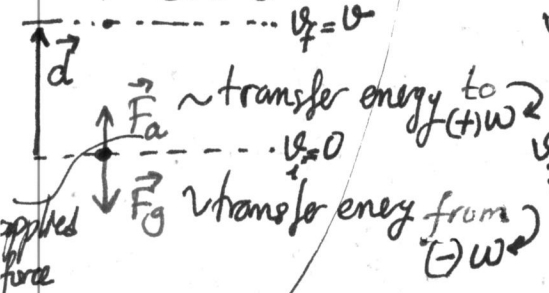 v_f = v
d⃗
F⃗a ~ transfer energy to (+)W
v_i = 0
F⃗g ~ transfer eney from (-)W
applied
force